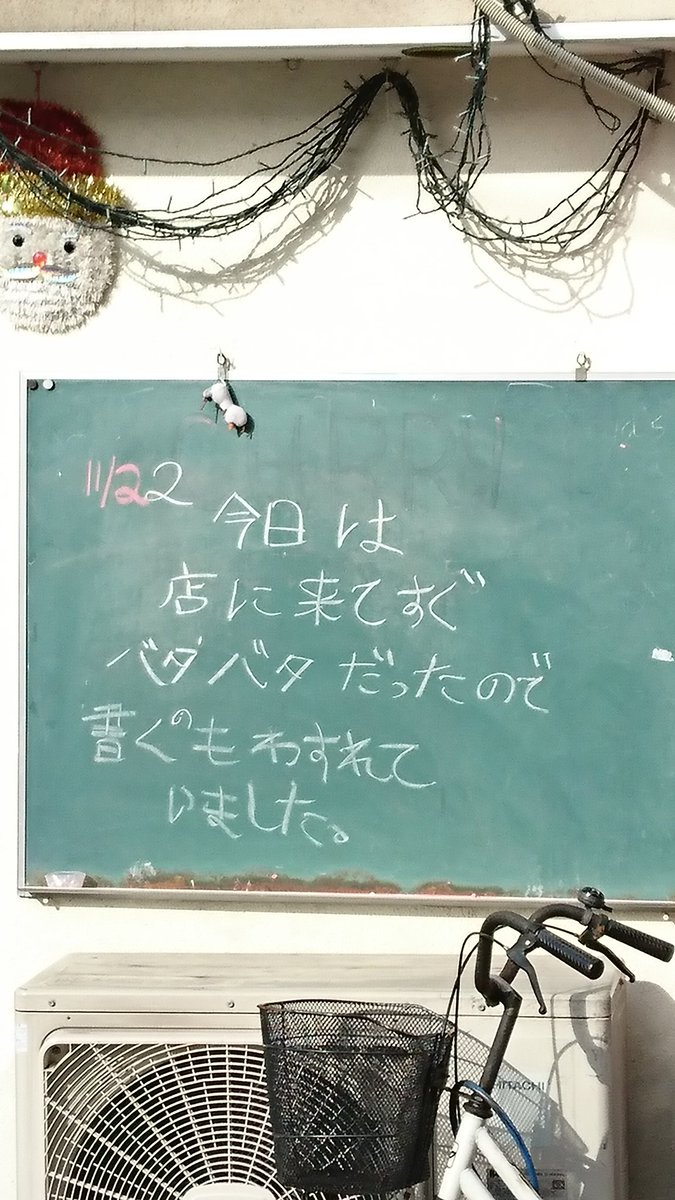 11/22
今日は
店に来てすぐ
バダバタだったので
書くのもわすれて
いました。
HITACHI